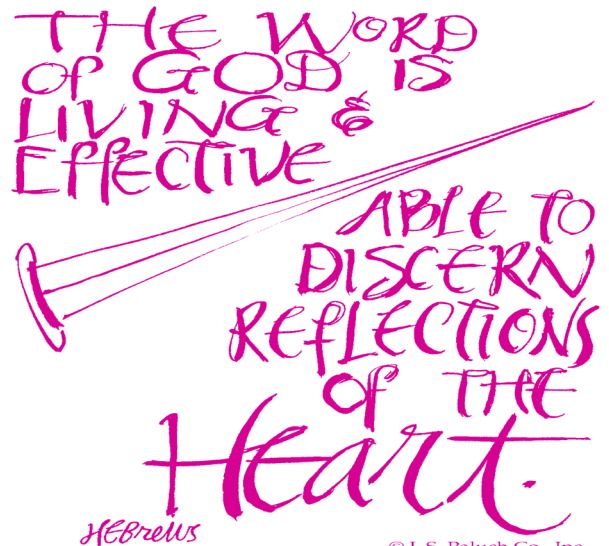 THE WORD
of GOD IS
LIVING &
EffECTIVE
ABLE TO
DISCERN
REfLECTIONS
Of THE
Heart.
HEBrews
© J. S. Paluch Co., Inc.